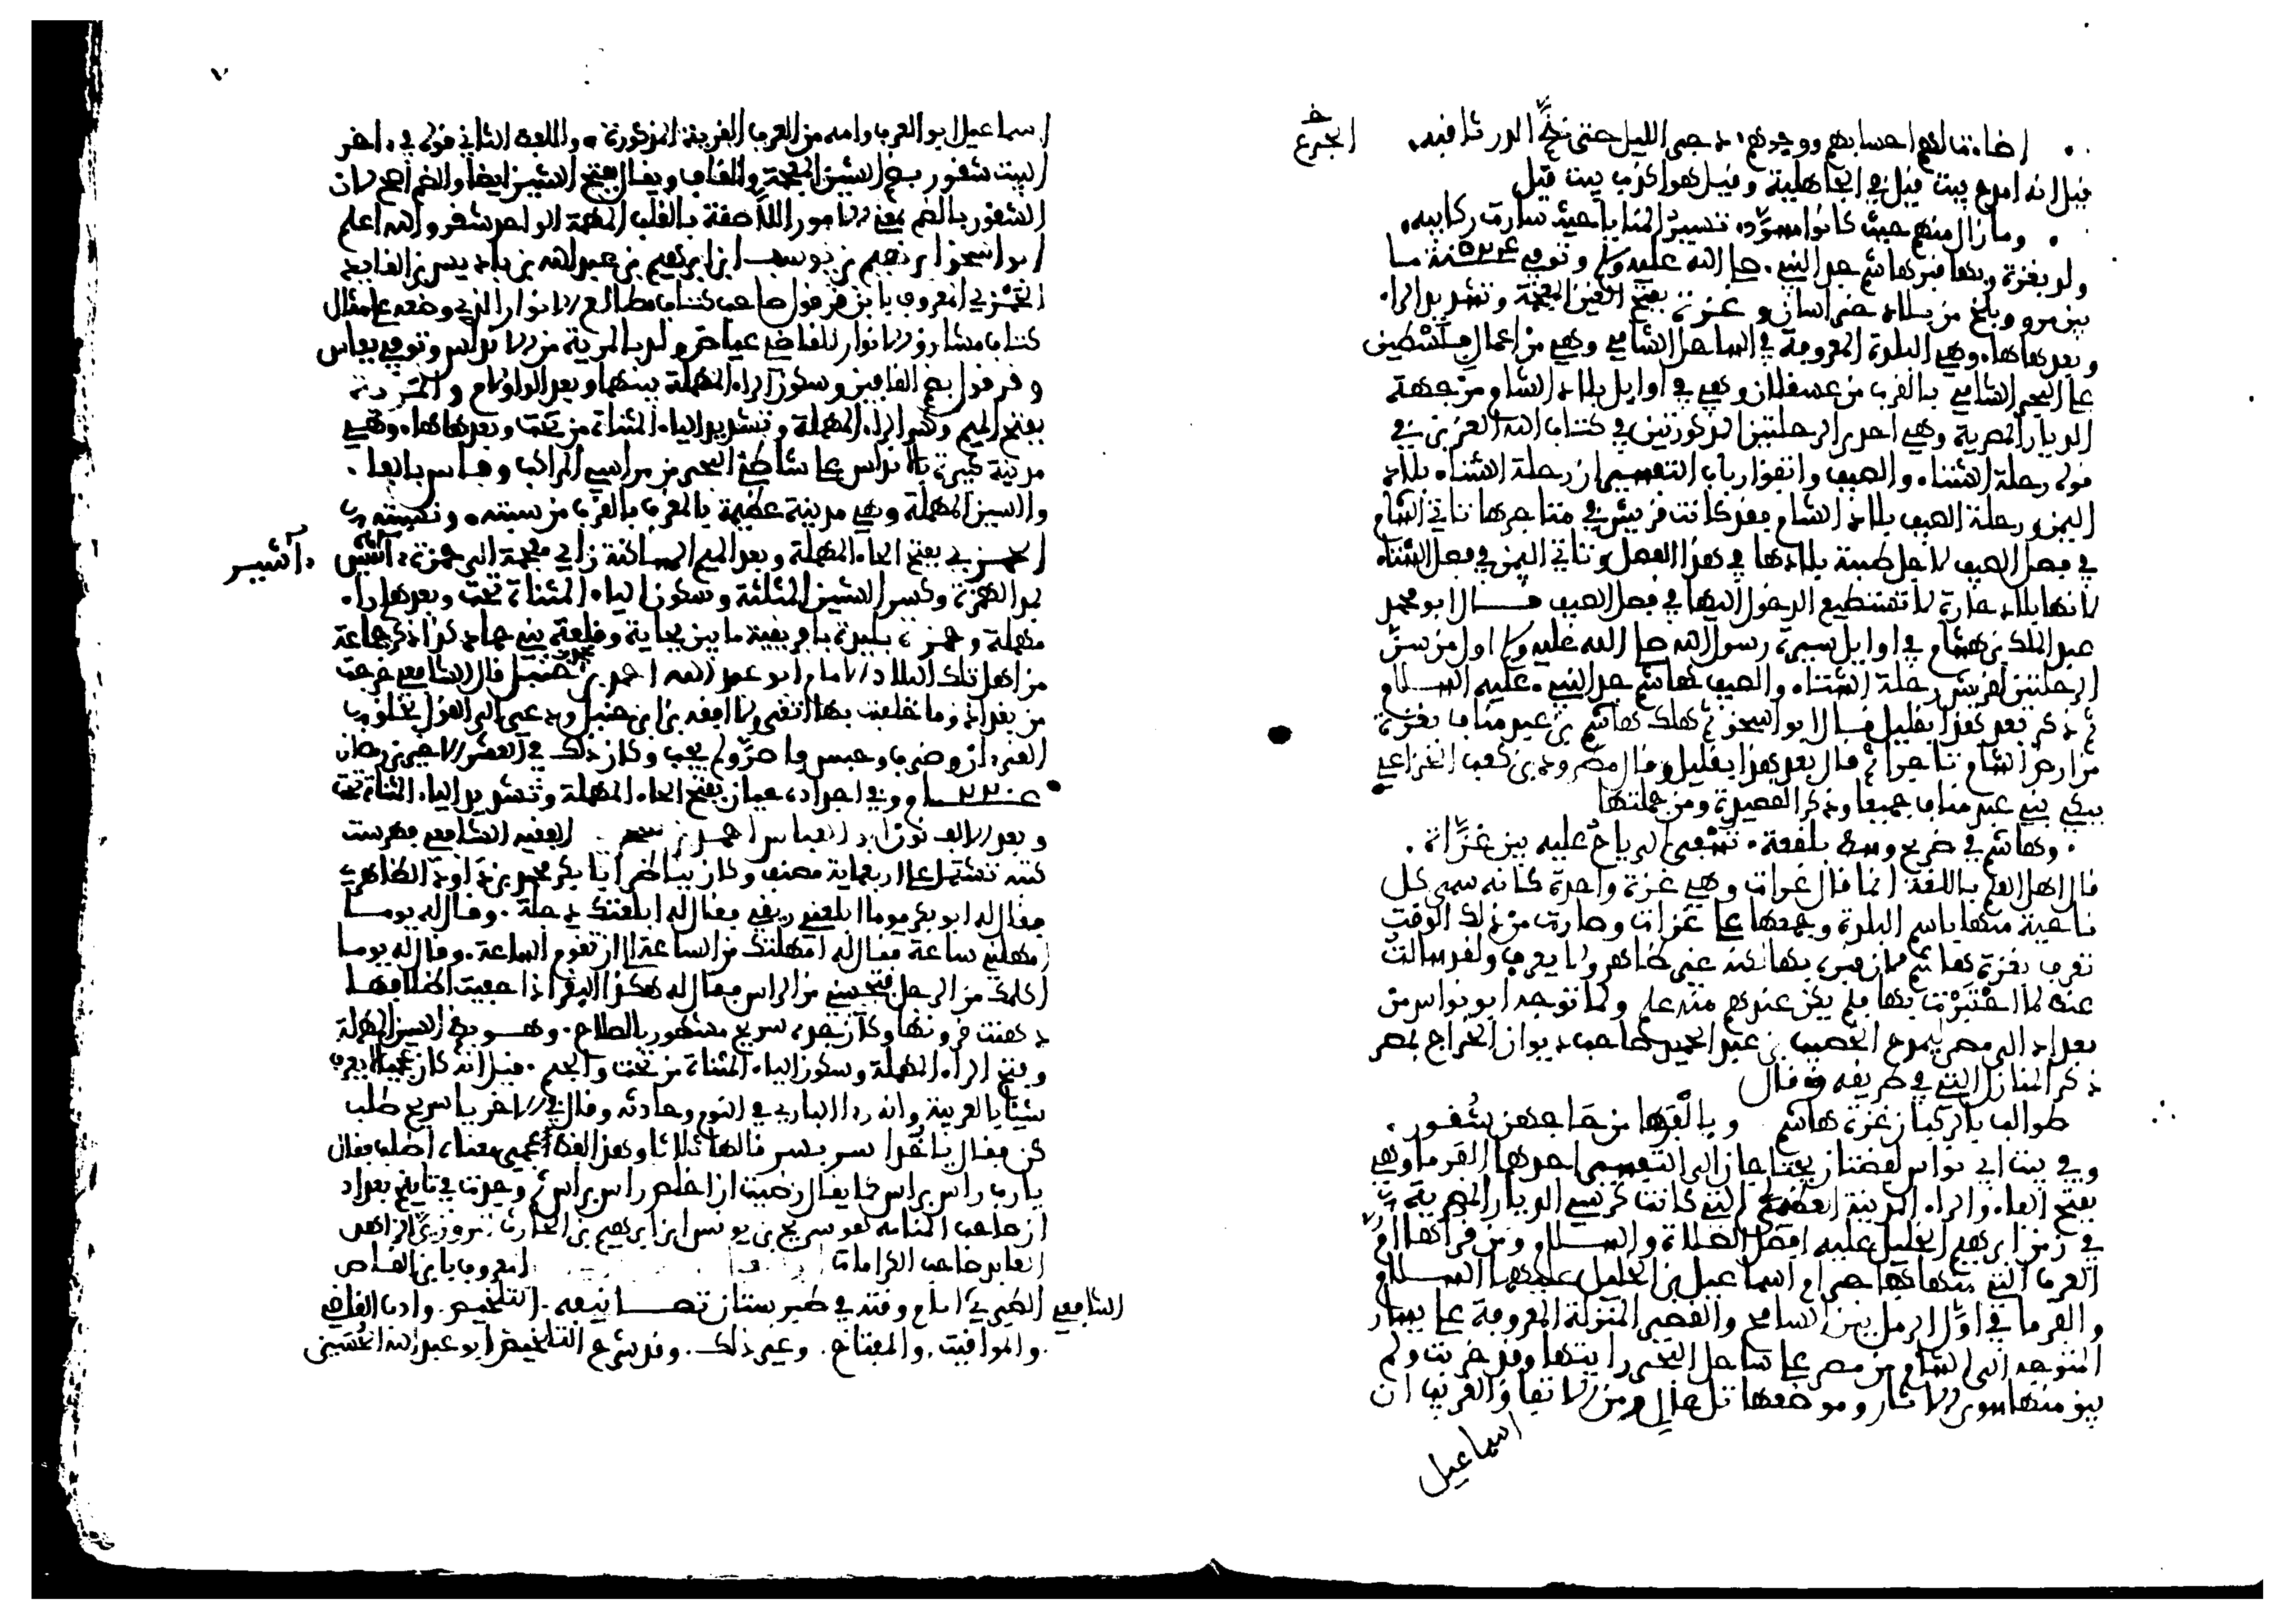 أضاءت لهم احسابهم ووجوههم دجى الليل حتى نظّم الدر ثاقبه
الجزع
قيل انه امدح بيت قيل في الجاهلية وقيل هو اكذب بيت قيل
وما زال منهم حيث كانوا مسوّد تسير المنايا حيث سارت ركايبه
ولد بغزة وبها قبر هاشم جد النبي صلى الله عليه وسلم وتوفي سنة ٥٢٤ ما
بين مرو وبلخ من بلاد خراسان وغزة بفتح الغين المعجمة وتشديد الزاء
وبعدها هاء وهي البلدة المعروفة في الساحل الشامي وهي من اعمال فلسطين
على البحر الشامي بالقرب من عسقلان وهي في اوايل بلاد الشام من جهة
الديار المصرية وهي احدى الرحلتين المذكورتين في كتاب الله العزيز في
قوله رحلة الشتاء والصيف واتفق ارباب التفسير ان رحلة الشتاء بلاد
اليمن ورحلة الصيف بلاد الشام فقد كانت قريش في متاجرها تاتي الشام
في فصل الصيف لاجل طيبة بلادها في هذا الفصل وتاتي اليمن في فصل الشتاء
لانها بلاد حارة لا تستطيع الدخول اليها في فصل الصيف قال ابو محمد
عبد الملك بن هشام في اوايل سيرة رسول الله صلى الله عليه وسلم اول من سنّ
الرحلتين لقريش رحلة الشتاء والصيف هاشم جد النبي عليه السلام
ثم ذكر بعد هذا بقليل قال ابو اسحق ثم هلك هاشم بن عبد مناف بغزة
من ارض الشام تاجرا ثم قال بعد هذا بقليل وقال مطرود بن كعب الخزاعي
يبكي بني عبد مناف جميعا وذكر القصيدة ومن جملتها
وهاشم في ضريح وسط بلقعة تسفي الرياح عليه بين غزّات
قال اهل العلم باللغة انما قال غزات وهي غزة واحدة كانه سمى كل
ناحية منها باسم البلدة وجمعها على غزات وصارت من ذلك الوقت
تعرف بغزة هاشم لان قبره بها لكنه غير ظاهر ولا يعرف ولقد سالت
عنه لما اجتزت بها فلم يكن عندهم منه علم ولما توجه ابو نواس من
بغداد الى مصر يمدح الخصيب بن عبد الحميد صاحب ديوان الخراج بمصر
ذكر المنازل التي في طريقه فقال
طوالب بالركبان غزة هاشم وبالفرما من حاجهن شقور
وفي بيت ابي نواس لفظتان يحتاجان الى التفسير احدها الفرما وهي
بفتح الفاء والراء المدينة العظمى التي كانت كرسي الديار المصرية
في زمن ابرهيم الخليل عليه افضل الصلاة والسلام ومن قراها امّ
العرب التي منها هاجر ام اسماعيل بن الخليل عليهما السلام
والفرما في اوّل الرمل بين السانح والقصير المنزلة المعروفة على يسار
المتوجه الى الشام من مصر على ساحل البحر رايتها وقد خربت ولم
يبق منها سوى الاثار وموضعها تل عال ومن الاتفاق الغريب ان
اسماعيل
٧
اسماعيل ابو العرب وامه من العرب القرية المذكورة واللفظة الثاني قوله في اخر
البيت شقور بضم الشين المعجمة والقاف ويقال بفتح الشين ايضا والضم اصح لان
الشقور بالضم بمعنى الامور اللاصقة بالقلب المهمة الواحد شقر والله اعلم
ابو اسحق ابرهيم بن يوسف ابن ابرهيم بن عبد الله بن باديس بن القايد
الحمزي المعروف بابن قرقول صاحب كتاب مطالع الانوار الذي وضعه على مثال
كتاب مشارق الانوار للقاضي عياض ولد بالمرية من الاندلس وتوفي بفاس
وقرقول بضم القافين وسكون الراء المهملة بينهما وبعد الواو لام والمرية
بفتح الميم وكسر الراء المهملة وتشديد الياء المثناة من تحت وبعدها هاء وهي
مدينة كبيرة بالاندلس على شاطئ البحر من مراسي المراكب وفاس بالفاء
والسين المهملة وهي مدينة عظيمة بالمغرب بالقرب من سبتة ونسبته
الحمزي بفتح الحاء المهملة وبعد الميم الساكنة زاي معجمة الى حمزة آشير
آشير
بمد الهمزة وكسر الشين المثلثة وسكون الياء المثناة تحت وبعدها راء
مهملة وحمزة بليدة بافريقية ما بين بجاية وقلعة بني حماد كذا ذكر جماعة
من اهل تلك البلاد الامام ابو عبد الله احمد بن محمد بن حنبل قال الشافعي خرجت
من بغداد وما خلفت بها اتقى ولا افقه من ابن حنبل ودعي الى القول بخلق
القرءان وضرب وحبس واصرّ ولم يجب وكان ذلك في العشر الاخير من رمضان
سنة ٢٢٠ وفي اجداده حيان بفتح الحاء المهملة وتشديد الياء المثناة تحت
وبعد الالف نون ابو العباس احمد بن الفقيه الشافعي فهرست
كتبه تشتمل على اربعماية مصنف وكان يناظر ابا بكر محمد بن داود الظاهري
فقال له ابو بكر يوما ابلعني ريقي فقال له ابلعتك دجلة وقال له يوما
امهلني ساعة فقال له امهلتك من الساعة الى ان تقوم الساعة وقال له يوما
اكلمك من الرجل فتجيبني من الراس فقال له هكذا البقر اذا حفيت اظلافها
دهنت قرونها وكان جده سريج مشهور بالصلاح وهو بضم السين المهملة
وفتح الراء المهملة وسكون الياء المثناة من تحت والجيم قيل انه كان عجميا لا يعرف
شيئا بالعربية وانه راى الباري في النوم وحادثه وقال في الاخر يا سريج طلب
كن فقال يا خدا سر بسر قالها ثلاثا وهذا لفظ اعجمي معناه اطلب فقال
يا رب راس براس كما يقال رضيت ان اخلص راس براس ثم وجدت في تاريخ بغداد
ان صاحب المنامة هو سريج بن يونس ابن ابرهيم بن الحارث المروزي الزاهد
العابد صاحب الكرامات المعروف بابن القاص
الشافعي الطبري امام وقته في طبرستان تصانيفه التلخيص وادب القاضي
والمواقيت والمفتاح وغير ذلك وقد شرح التلخيص ابو عبد الله الحسين